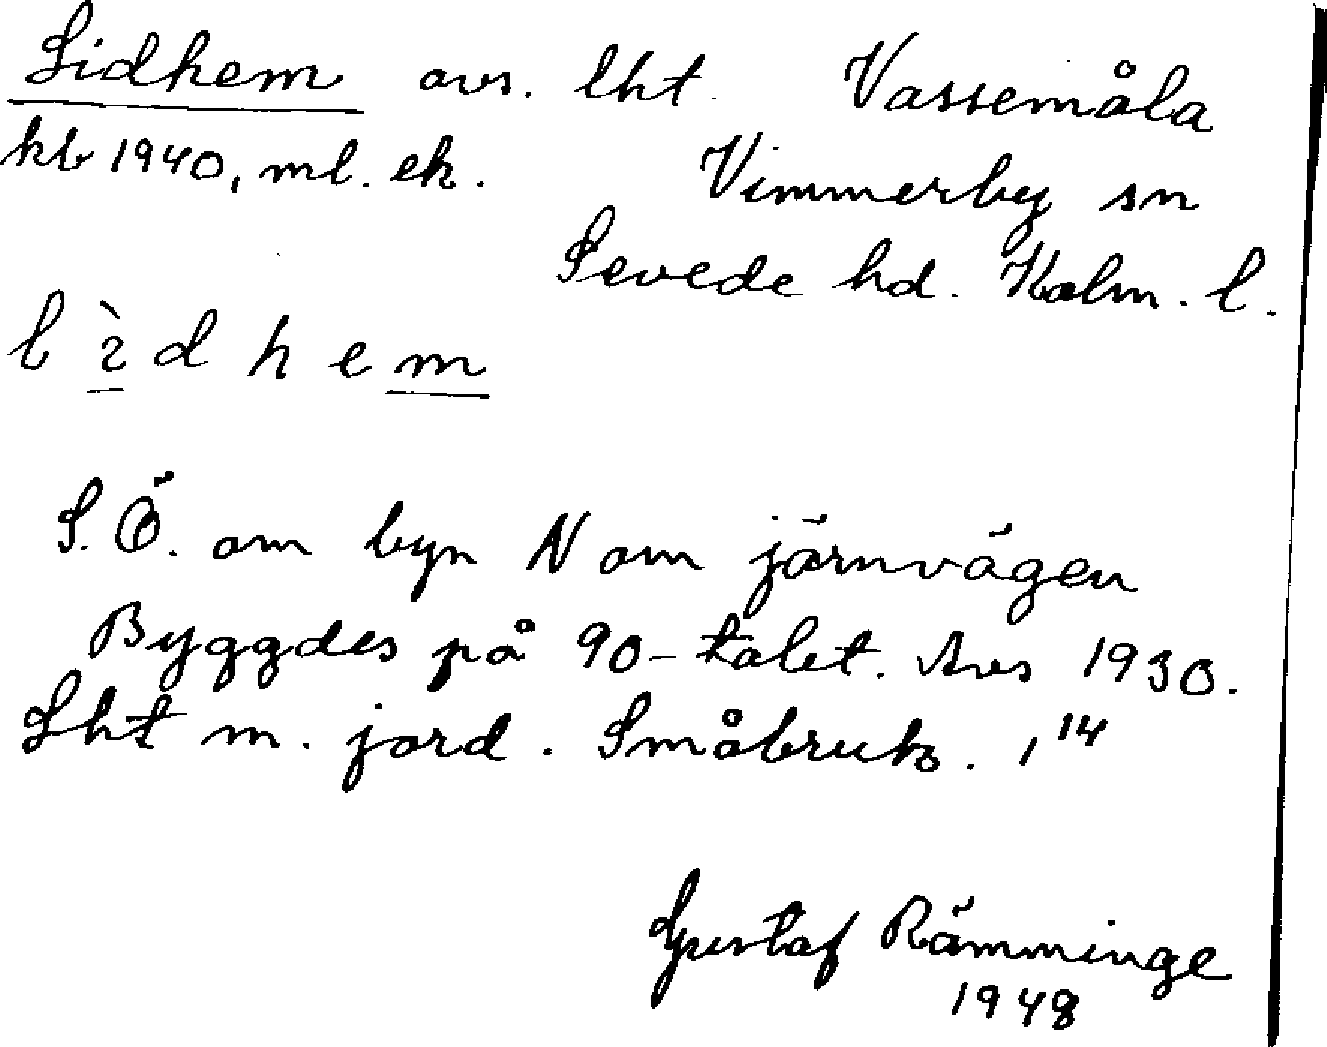 Lidhem avs. lht. Vassemåla
kb 1940, ml. ek. Vimmerby sn
Sevede hd. Kalm. l.
l ì d h e m
S.Ö. om byn N om järnvägen
Byggdes på 90-talet. Avs 1930.
Lht m. jord. Småbruk. , 14
Gustaf Rämminge
1948